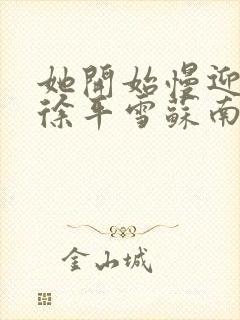 她開始慢迎
徐平雪蘇南
金山城